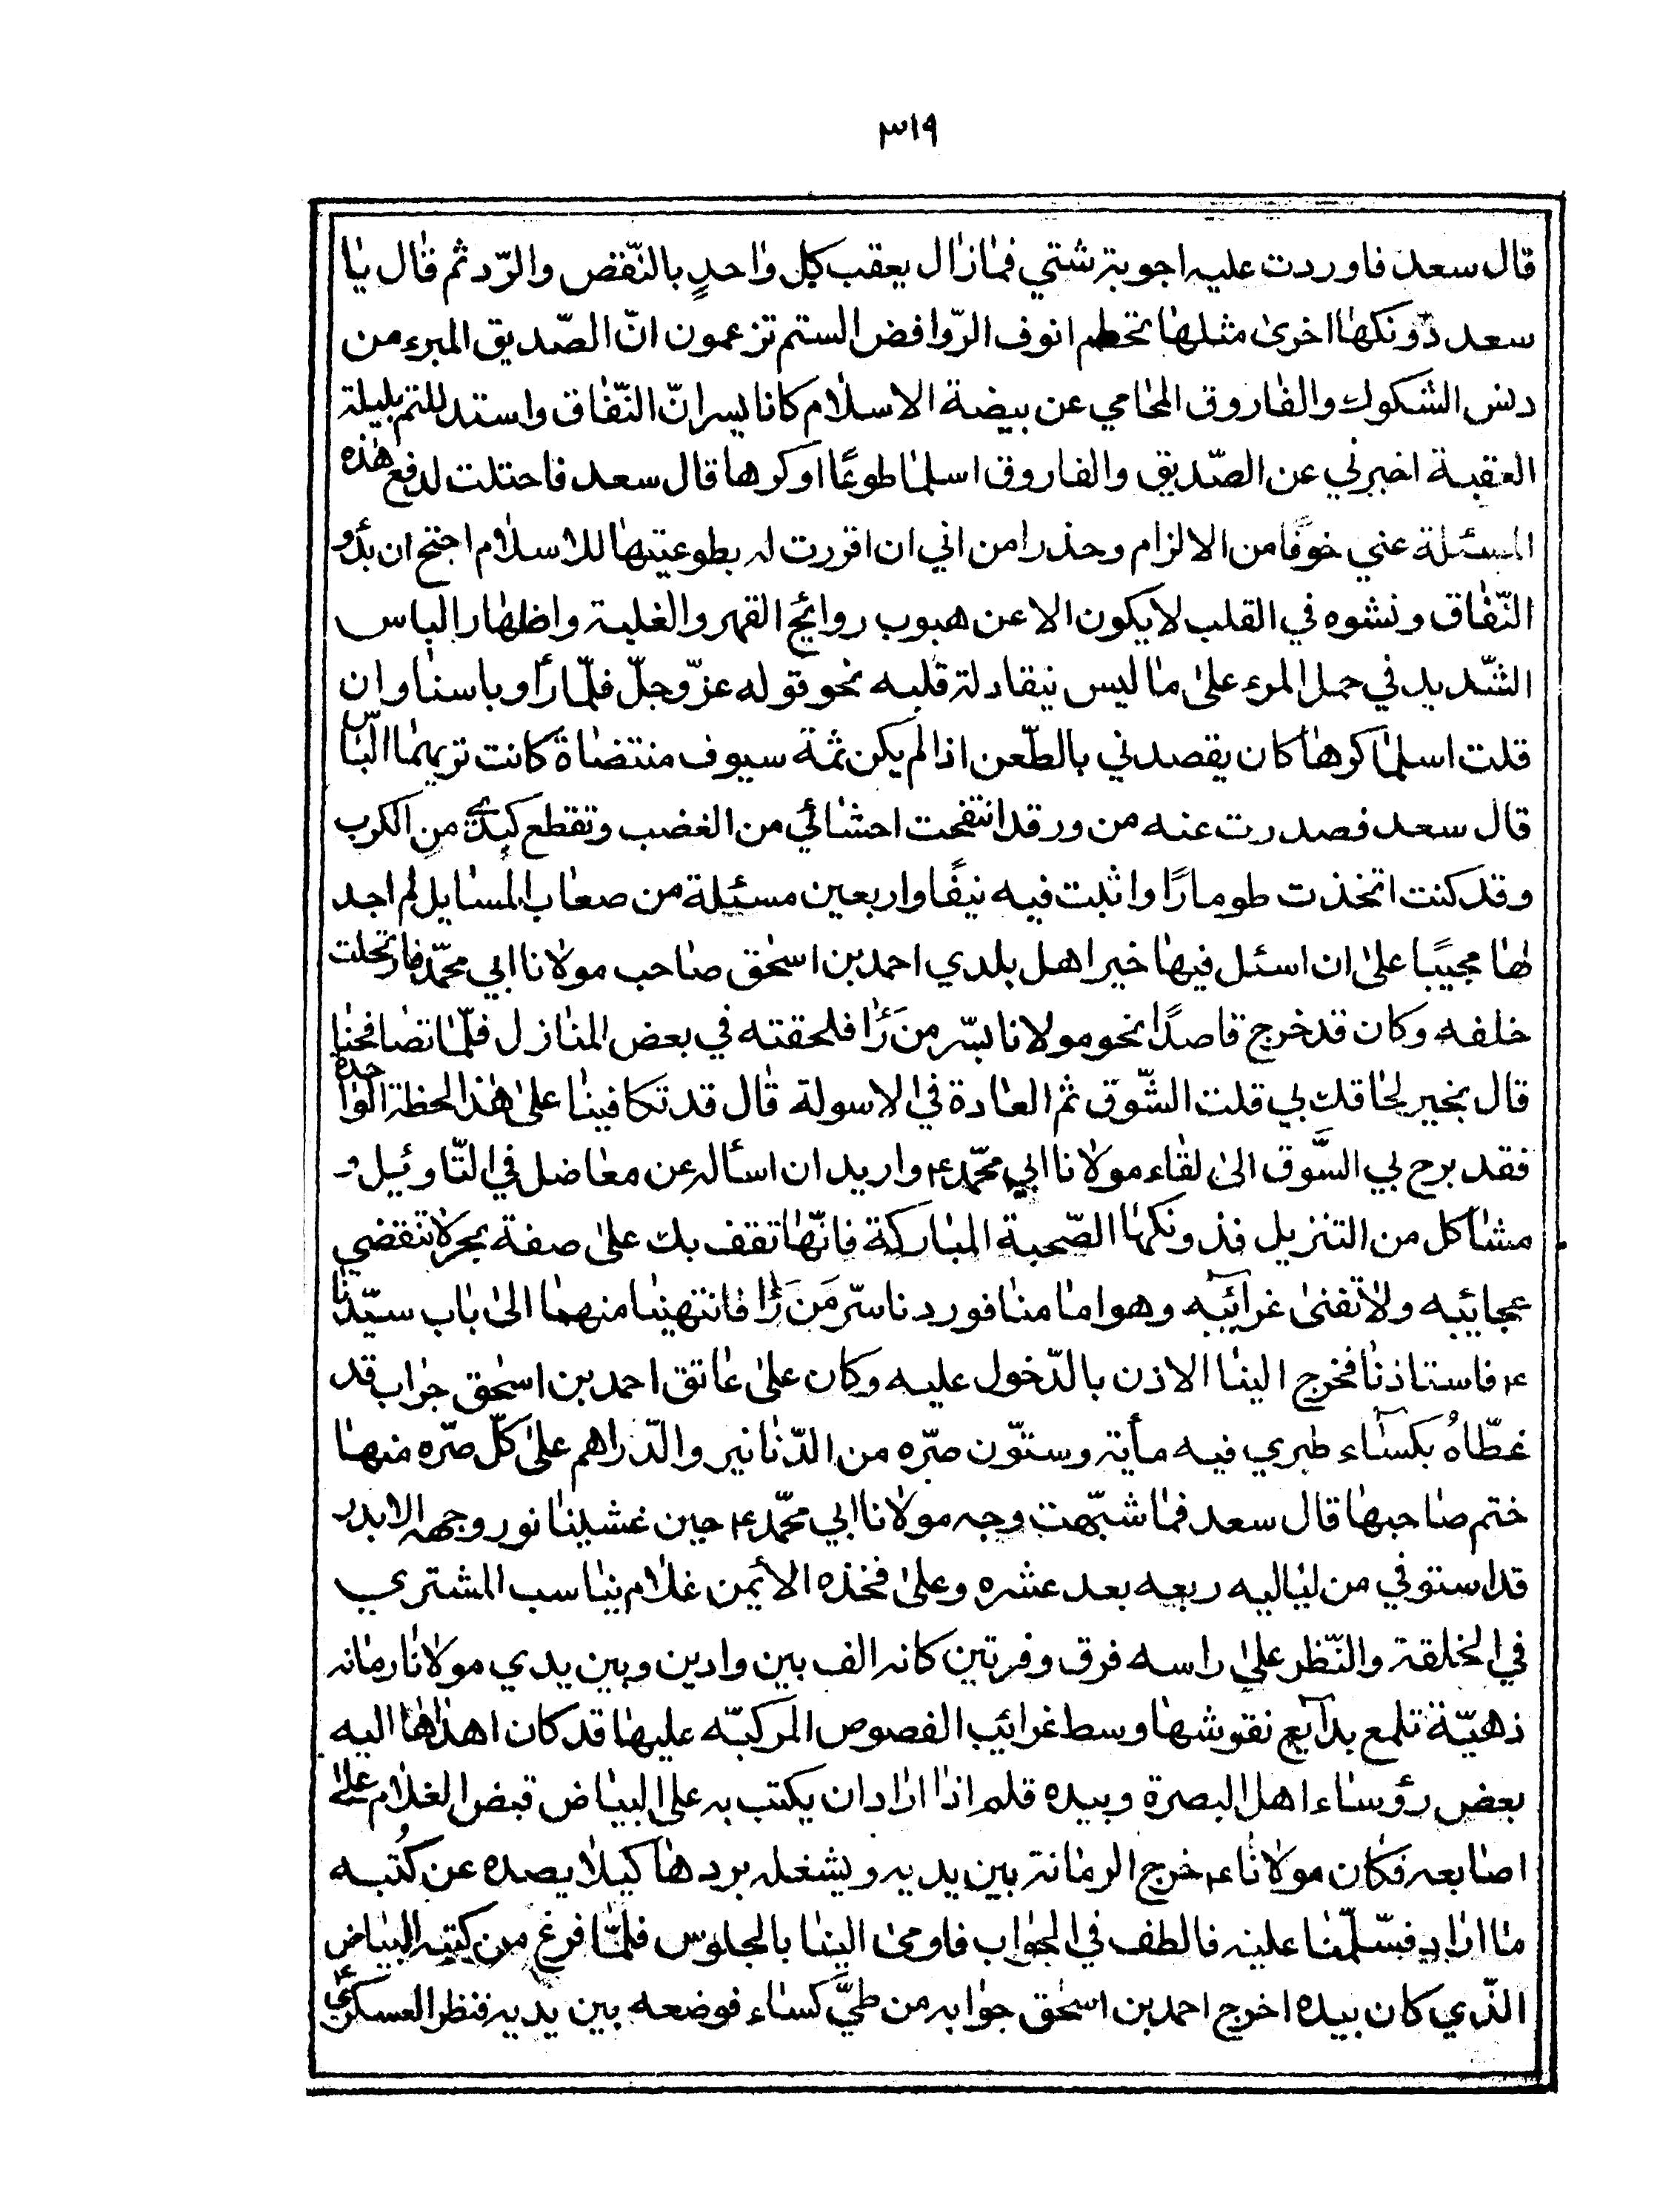 ٣١٩
قال سعد فاوردت عليه اجوبة شتي فمازال يعقب كل واحدٍ بالنّقض والرّد ثم قال يا
سعد دونكها اخرى مثلها تخطم انوف الرّوافض الستم تزعمون انّ الصّديق المبرء من
دنس الشكوك والفاروق المحامي عن بيضة الاسلام كانا يسرانّ النّفاق واستدللتم بليلة
العقبة اخبرني عن الصّديق والفاروق اسلما طوعًا اوكرها قال سعد فاحتلت لدفع هذه
المسئلة عني خوفًا من الالزام وحذرا من اني ان اقررت له بطوعيتهما للاسلام احتج ان بدؤ
النّفاق ونشوه في القلب لايكون الا عن هبوب روائح القهر والغلبة واظهار الباس
الشّديد في حمل المرء على ما ليس ينقاد له قلبه نحو قوله عزّوجلّ فلمّا رأوباسنا وان
قلت اسلما كرها كان يقصدني بالطّعن اذا لم يكن ثمة سيوف منتضاة كانت تريهما الباس
قال سعد فصدرت عنه من ورقد انتفخت احشائي من الغضب وتقطع كبدي من الكرب
وقد كنت اتخذت طومارًا واثبت فيه نيفًا واربعين مسئلة من صعاب المسايل لم اجد
لها مجيبًا على ان اسئل فيها خير اهل بلدي احمد بن اسحق صاحب مولانا ابي محمّد فارتحلت
خلفه وكان قد خرج قاصدًا نحو مولانا بسّر من رَأ فلحقته في بعض المنازل فلمّا تصافحنا
قال بخير لحاقك بي قلت الشّوق ثم العادة في الاسولة قال قد تكافينا على هذا لحظة الواحدة
فقد برح بي السَّوق الى لقاء مولانا ابي محمّد ع واريد ان اسأله عن معاضل في التّاويل و
مشاكل من التنزيل فذونكها الصّحبة المباركة فانّها تقف بك على صفة بحر لاتنقضي
عجايبه ولاتفنى غرائبه وهو اما منا فوردنا سرّ مَن رَأ فانتهينا منهما الى باب سيّدنا
ع فاستاذنا فخرج الينا الاذن بالدّخول عليه وكان على عاتق احمد بن اسحق جراب قد
غطّاهُ بكساء طبري فيه مأية وستّون صرّه من الدّنانير والدّراهم على كلّ صرّه منها
ختم صاحبها قال سعد فما شبّهت وجه مولانا ابي محمّد ع حين غشينا نور وجهه الابدر
قد استوفي من لياليه ربعه بعد عشره وعلى فخذه الأيمن غلام يناسب المشتري
في الخلقة والنّظر على راسه فرق وفرتين كانه الف بين وادين وبين يدي مولانا رمانه
ذهبيّة تلمع بدآيع نقوشها وسط غرائيب الفصوص المركبّه عليها قد كان اهداها اليه
بعض رؤساء اهل البصرة وبيده قلم اذا اراد ان يكتب به على البياض قبض الغلام على
اصابعه فكان مولانا ع خرج الرمانة بين يديه ويشغله بردها كيلا يصده عن كُتبه
ما اراد فسّلّمنا علينه فالطف في الجواب فاومى الينا بالجلوس فلمّا فرغ من كتبه البياض
الذّي كان بيده اخرج احمد بن اسحق جوابه من طيَّ كساء فوضعه بين يديه فنظر العسكري ع